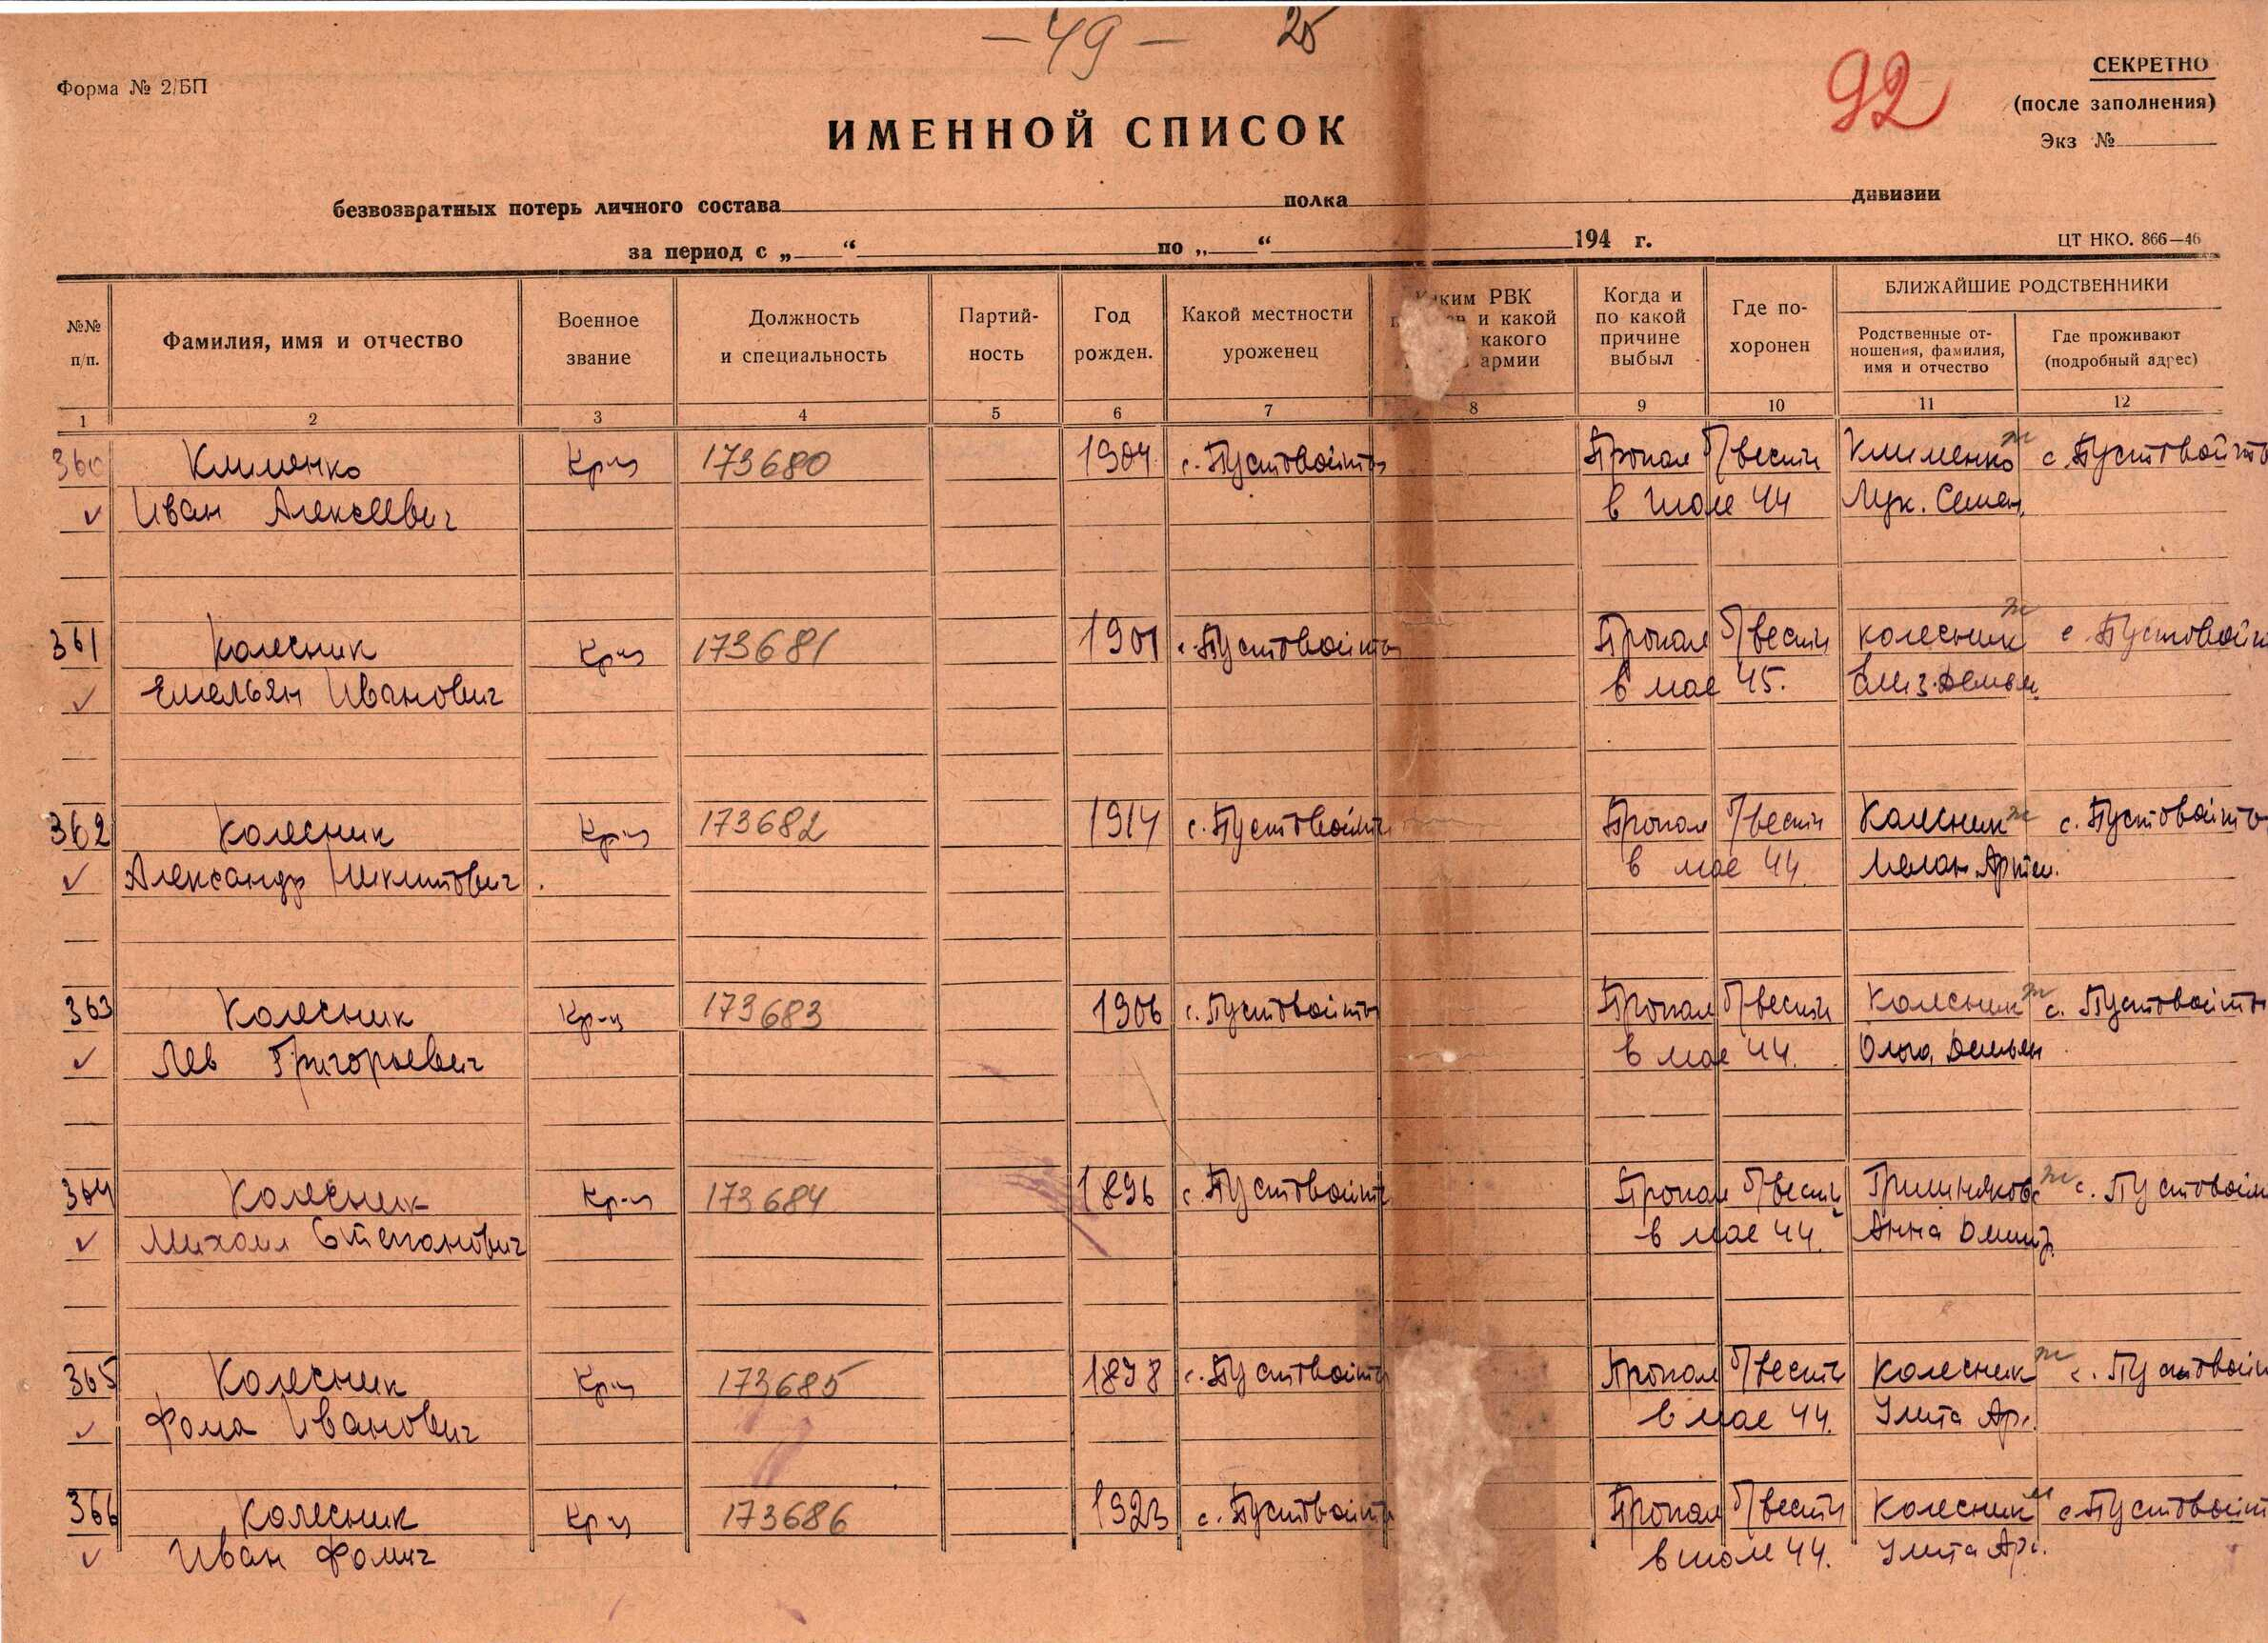 — 49 — 25
92
Форма № 2/БП
СЕКРЕТНО
(после заполнения)
Экз №
ИМЕННОЙ СПИСОК
безвозвратных потерь личного состава полка дивизии
за период с „ “ по „ “ 194 г.
ЦТ НКО. 866—46
№№ п/п.
Фамилия, имя и отчество
Военное звание
Должность и специальность
Партий-ность
Год рожден.
Какой местности уроженец
РВК
и какой
какого
армии
Когда и по какой причине выбыл
Где по-хоронен
БЛИЖАЙШИЕ РОДСТВЕННИКИ
Родственные от-ношения, фамилия, имя и отчество
Где проживают (подробный адрес)
1 2 3 4 5 6 7 8 9 10 11 12
360 Клименко Кр-ц 173680 1904 с. Пустовойты Пропал б/вести Клименко ж с. Пустовойты
Иван Алексеевич в июле 44 Лук. Семен.
361 Колесник Кр-ц 173681 1901 с. Пустовойты Пропал б/вести Колесник ж с. Пустовойт
Емельян Иванович в мае 45. Елиз. Демьян.
362 Колесник Кр-ц 173682 1914 с. Пустовойты Пропал б/вести Колесник ж с. Пустовойты
Александр Никитович в мае 44. Мелан. Артем.
363 Колесник Кр-ц 173683 1906 с. Пустовойты Пропал б/вести Колесник ж с. Пустовойты
Лев Григорьевич в мае 44. Ольга Демьян
364 Колесник Кр-ц 173684 1896 с. Пустовойты Пропал б/вести ж с. Пустовойт
Михаил Степанович в мае 44. Анна Дмит.
365 Колесник Кр-ц 173685 1898 с. Пустовойты Пропал б/вести Колесник ж с. Пустовойт
Фома Иванович в мае 44. Улита Ар.
366 Колесник Кр-ц 173686 1923 с. Пустовойты Пропал б/вести Колесник м с. Пустовойт
Иван Фомич в июле 44. Улита Ар.